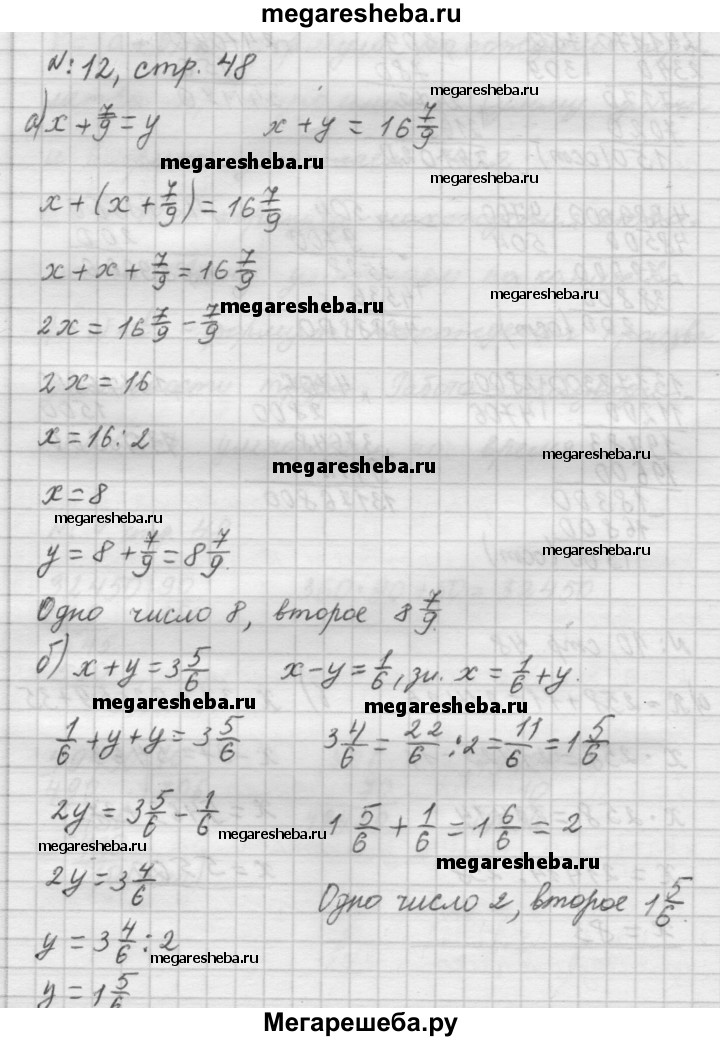 megaresheba.ru
№: 12, стр. 48
megaresheba.ru
а) x + 7/9 = y x + y = 16 7/9
megaresheba.ru
megaresheba.ru
x + (x + 7/9) = 16 7/9
x + x + 7/9 = 16 7/9
megaresheba.ru
megaresheba.ru
2x = 16 7/9 - 7/9
2x = 16
x = 16 : 2
megaresheba.ru
megaresheba.ru
x = 8
megaresheba.ru
y = 8 + 7/9 = 8 7/9.
megaresheba.ru
Одно число 8, второе 8 7/9.
б) x + y = 3 5/6 x - y = 1/6, зн. x = 1/6 + y.
megaresheba.ru megaresheba.ru
1/6 + y + y = 3 5/6 3 4/6 = 22/6 : 2 = 11/6 = 1 5/6
2y = 3 5/6 - 1/6 1 5/6 + 1/6 = 1 6/6 = 2
megaresheba.ru megaresheba.ru
megaresheba.ru
2y = 3 4/6
Одно число 2, второе 1 5/6.
y = 3 4/6 : 2
megaresheba.ru
y = 1 5/6
Мегарешеба.ру